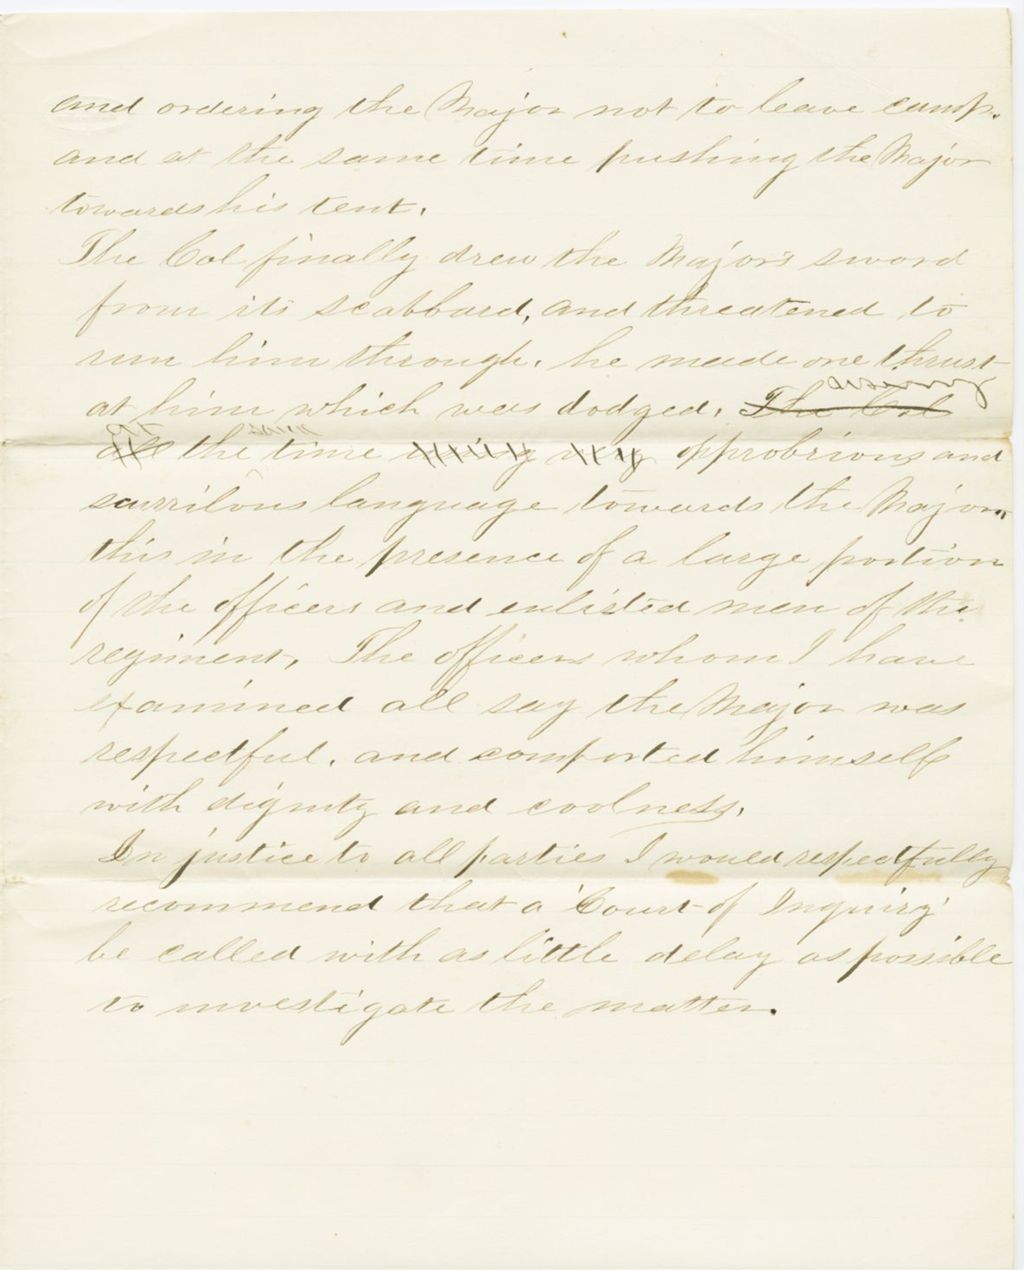 and ordering the Major not to leave camp.
and at the same time pushing the Major
towards his tent.
The Col finally drew the Majors sword
from its scabbard, and threatened to
run him through. he made one thrust
at him which was dodged. The Col using
all At the same time using very opprobrious and
scurrilous language towards the Major,
this in the presence of a large portion
of the officers and enlisted men of the
regiment. The officers whom I have
examined all say the Major was
respectful, and comported himself
with dignity and coolness.
In justice to all parties I would respectfully
recommend that a 'Court of Inquiry'
be called with as little delay as possible
to investigate the matter.